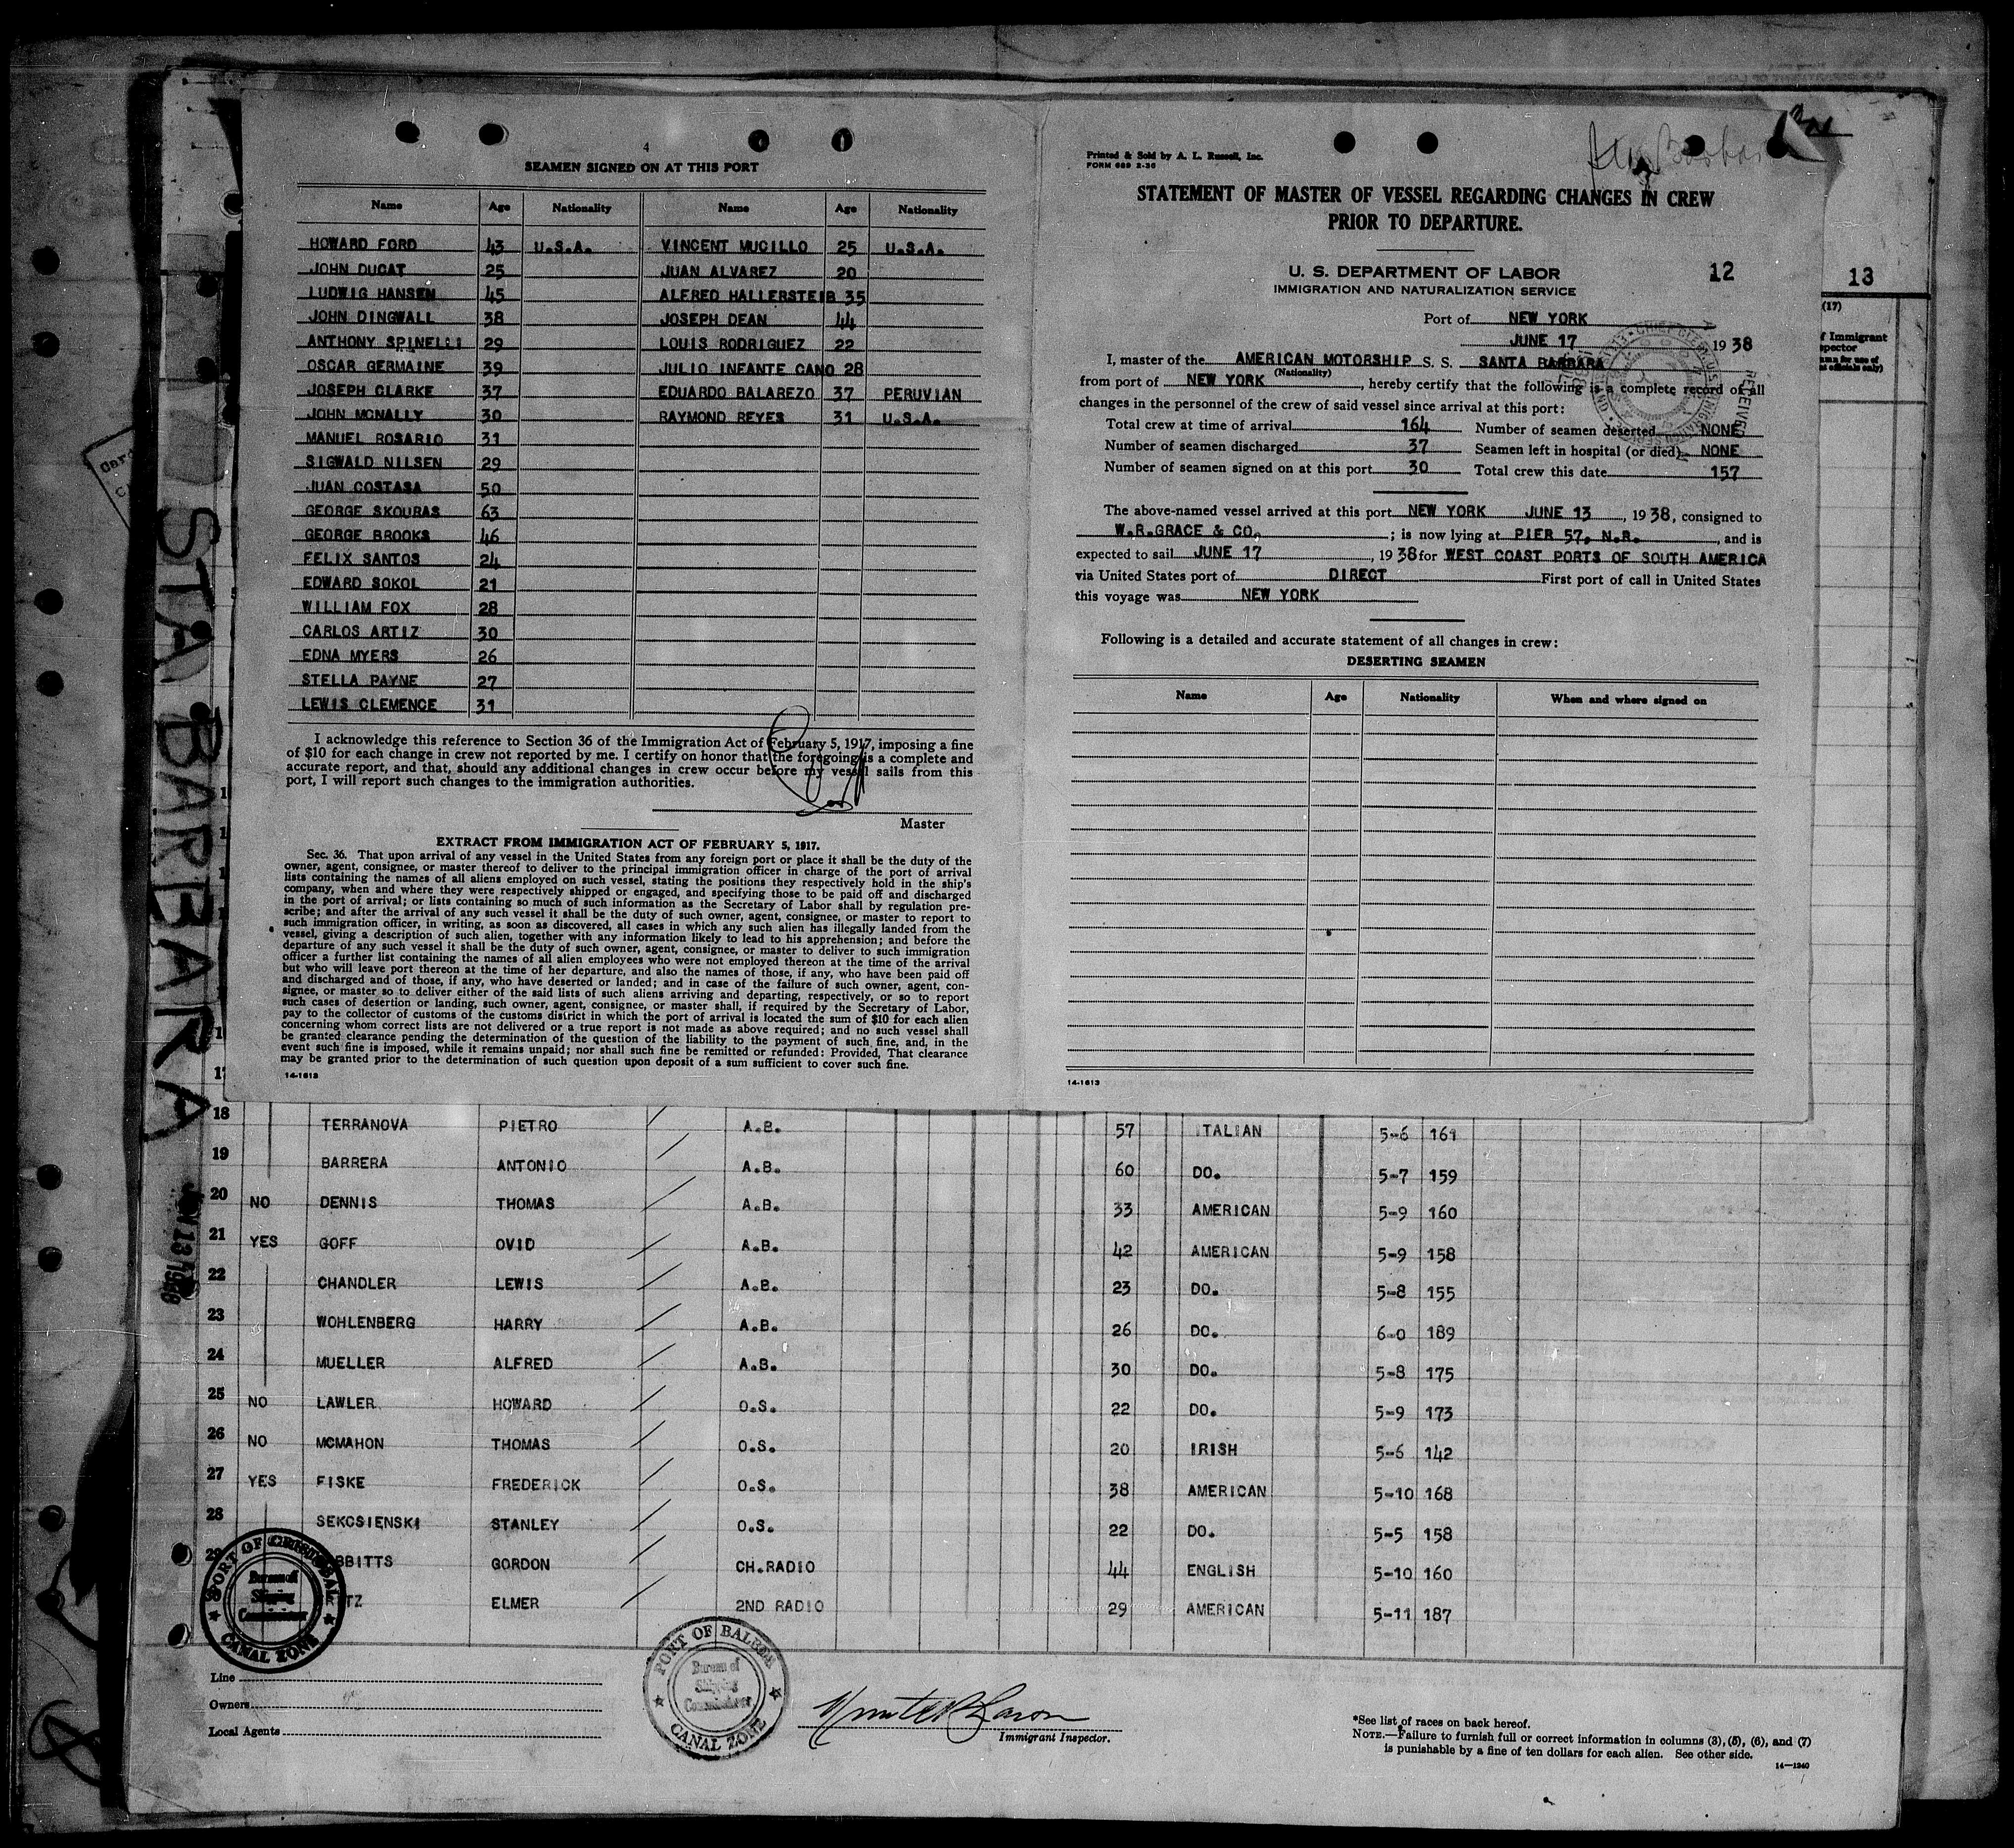 4
SEAMEN SIGNED ON AT THIS PORT
Name Age Nationality Name Age Nationality
HOWARD FORD 43 U.S.A. VINCENT MUCILLO 25 U.S.A.
JOHN DUCAT 25 JUAN ALVAREZ 20
LUDWIG HANSEN 45 ALFRED HALLERSTEIB 35
JOHN DINGWALL 38 JOSEPH DEAN 44
ANTHONY SPINELLI 29 LOUIS RODRIGUEZ 22
OSCAR GERMAINE 39 JULIO INFANTE CANO 28
JOSEPH CLARKE 37 EDUARDO BALAREZO 37 PERUVIAN
JOHN MCNALLY 30 RAYMOND REYES 31 U.S.A.
MANUEL ROSARIO 31
SIGWALD NILSEN 29
JUAN COSTASA 50
GEORGE SKOURAS 63
GEORGE BROOKS 46
FELIX SANTOS 24
EDWARD SOKOL 21
WILLIAM FOX 28
CARLOS ARTIZ 30
EDNA MYERS 26
STELLA PAYNE 27
LEWIS CLEMENCE 31
I acknowledge this reference to Section 36 of the Immigration Act of February 5, 1917, imposing a fine
of $10 for each change in crew not reported by me. I certify on honor that the foregoing is a complete and
accurate report, and that, should any additional changes in crew occur before my vessel sails from this
port, I will report such changes to the immigration authorities.
Master
EXTRACT FROM IMMIGRATION ACT OF FEBRUARY 5, 1917.
Sec. 36. That upon arrival of any vessel in the United States from any foreign port or place it shall be the duty of the
owner, agent, consignee, or master thereof to deliver to the principal immigration officer in charge of the port of arrival
lists containing the names of all aliens employed on such vessel, stating the positions they respectively hold in the ship's
company, when and where they were respectively shipped or engaged, and specifying those to be paid off and discharged
in the port of arrival; or lists containing so much of such information as the Secretary of Labor shall by regulation pre-
scribe; and after the arrival of any such vessel it shall be the duty of such owner, agent, consignee, or master to report to
such immigration officer, in writing, as soon as discovered, all cases in which any such alien has illegally landed from the
vessel, giving a description of such alien, together with any information likely to lead to his apprehension; and before the
departure of any such vessel it shall be the duty of such owner, agent, consignee, or master to deliver to such immigration
officer a further list containing the names of all alien employees who were not employed thereon at the time of the arrival
but who will leave port thereon at the time of her departure, and also the names of those, if any, who have been paid off
and discharged and of those, if any, who have deserted or landed; and in case of the failure of such owner, agent, con-
signee, or master so to deliver either of the said lists of such aliens arriving and departing, respectively, or so to report
such cases of desertion or landing, such owner, agent, consignee, or master shall, if required by the Secretary of Labor,
pay to the collector of customs of the customs district in which the port of arrival is located the sum of $10 for each alien
concerning whom correct lists are not delivered or a true report is not made as above required; and no such vessel shall
be granted clearance pending the determination of the question of the liability to the payment of such fine, and, in the
event such fine is imposed, while it remains unpaid; nor shall such fine be remitted or refunded: Provided, That clearance
may be granted prior to the determination of such question upon deposit of a sum sufficient to cover such fine.
14-1613
Printed & Sold by A. L. Russell, Inc.
FORM 689 2-36
STATEMENT OF MASTER OF VESSEL REGARDING CHANGES IN CREW
PRIOR TO DEPARTURE.
U. S. DEPARTMENT OF LABOR
IMMIGRATION AND NATURALIZATION SERVICE
12
13
Port of NEW YORK
JUNE 17 1938
I, master of the AMERICAN MOTORSHIP S. S. SANTA BARBARA
(Nationality)
from port of NEW YORK, hereby certify that the following is a complete record of all
changes in the personnel of the crew of said vessel since arrival at this port:
Total crew at time of arrival 164 Number of seamen deserted NONE
Number of seamen discharged 37 Seamen left in hospital (or died) NONE
Number of seamen signed on at this port 30 Total crew this date 157
RECEIVED
The above-named vessel arrived at this port NEW YORK JUNE 13, 1938, consigned to
W.R.GRACE & CO.; is now lying at PIER 57, N.R., and is
expected to sail JUNE 17 1938 for WEST COAST PORTS OF SOUTH AMERICA
via United States port of DIRECT First port of call in United States
this voyage was NEW YORK
Following is a detailed and accurate statement of all changes in crew:
DESERTING SEAMEN
Name Age Nationality When and where signed on
14-1613
(17)
STA BARBARA
JUN 13 1938
18 TERRANOVA PIETRO A.B. 57 ITALIAN 5-6 161
19 BARRERA ANTONIO A.B. 60 DO. 5-7 159
20 NO DENNIS THOMAS A.B. 33 AMERICAN 5-9 160
21 YES GOFF OVID A.B. 42 AMERICAN 5-9 158
22 CHANDLER LEWIS A.B. 23 DO. 5-8 155
23 WOHLENBERG HARRY A.B. 26 DO. 6-0 189
24 MUELLER ALFRED A.B. 30 DO. 5-8 175
25 NO LAWLER HOWARD O.S. 22 DO. 5-9 173
26 NO MCMAHON THOMAS O.S. 20 IRISH 5-6 142
27 YES FISKE FREDERICK O.S. 38 AMERICAN 5-10 168
28 SEKOSIENSKI STANLEY O.S. 22 DO. 5-5 158
29 BBITTS GORDON CH.RADIO 44 ENGLISH 5-10 160
TZ ELMER 2ND RADIO 29 AMERICAN 5-11 187
PORT OF CRISTOBAL
Bureau of
Shipping
Commissioner
CANAL ZONE
PORT OF BALBOA
Bureau of
Shipping
Commissioner
CANAL ZONE
Line
Owners
Local Agents
Immigrant Inspector.
*See list of races on back hereof.
NOTE.—Failure to furnish full or correct information in columns (3), (5), (6), and (7)
is punishable by a fine of ten dollars for each alien. See other side.
14—1240